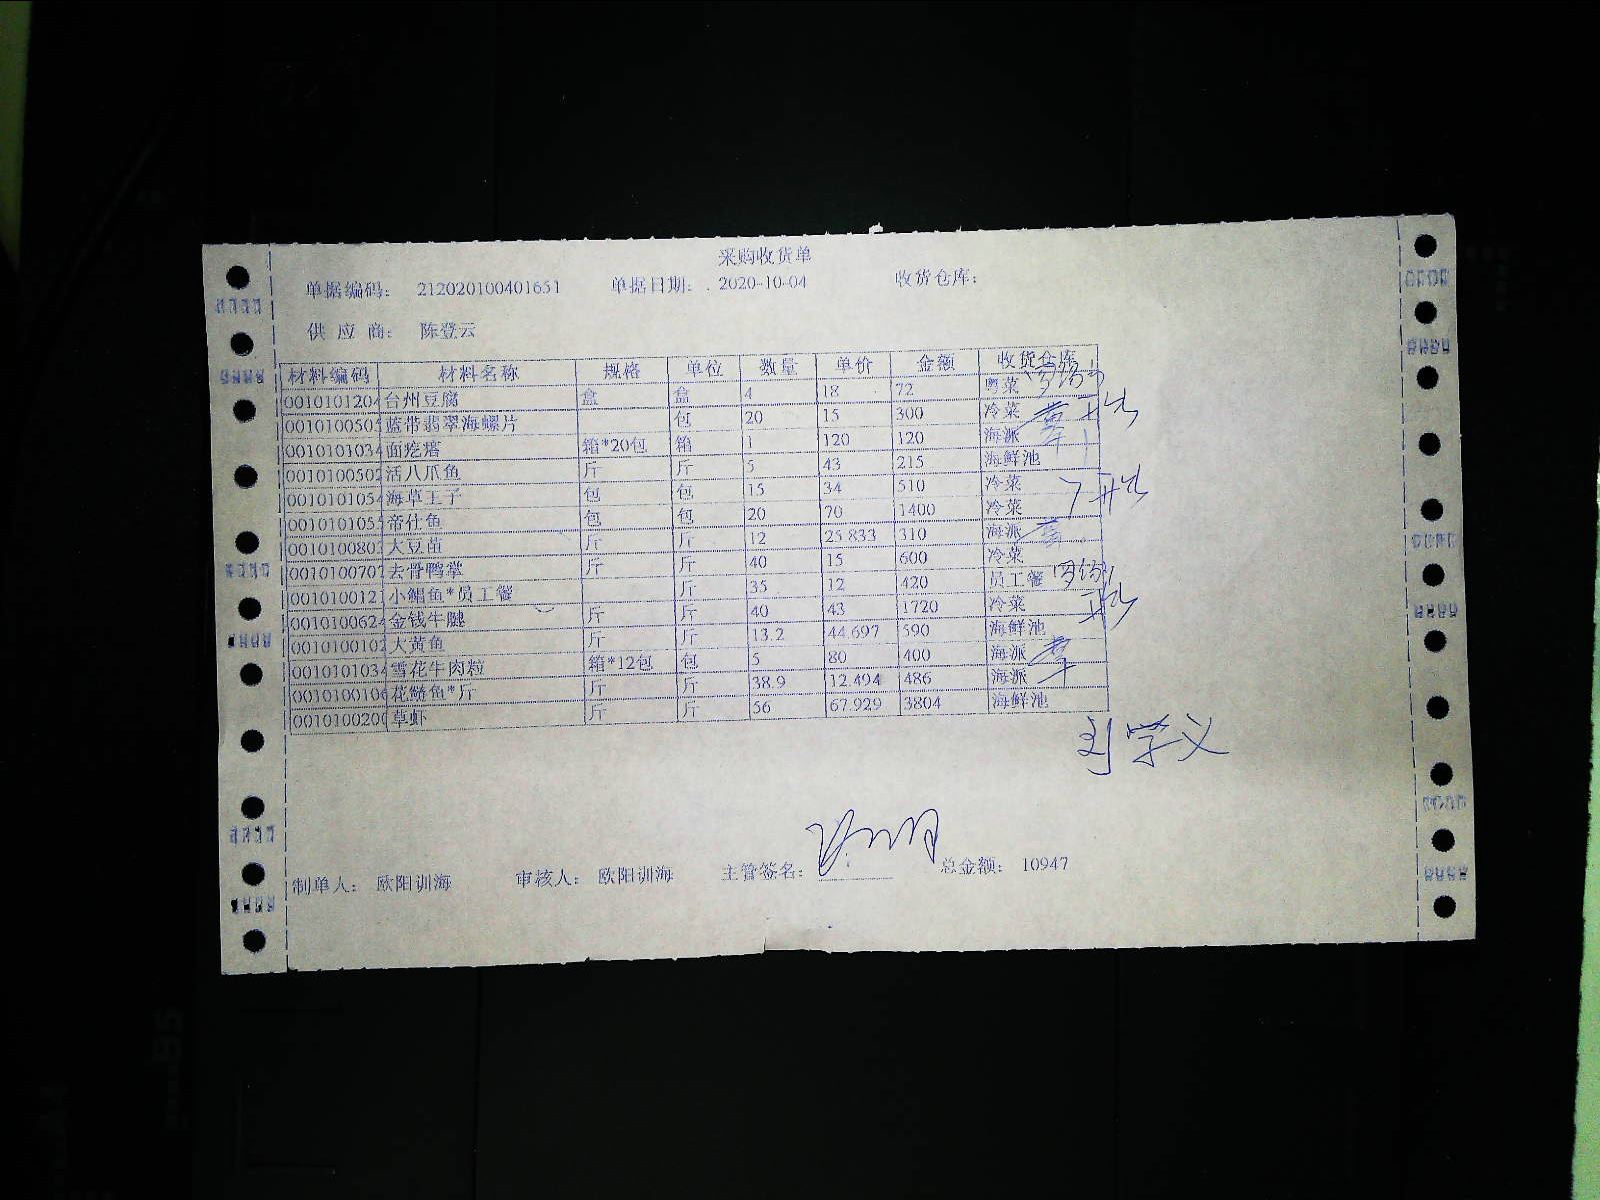 采购收货单
单据编码: 212020100401651 单据日期: 2020-10-04 收货仓库:
供 应 商: 陈登云
材料编码 材料名称 规格 单位 数量 单价 金额 收货仓库
0010101204 台州豆腐 盒 盒 4 18 72 粤菜
001010050 蓝带翡翠海螺片 包 20 15 300 冷菜
0010101034 面疙瘩 箱*20包 箱 1 120 120 海派
001010050 活八爪鱼 斤 斤 5 43 215 海鲜池
0010101054 海草王子 包 包 15 34 510 冷菜
001010105 帝仕鱼 包 包 20 70 1400 冷菜
001010080 大豆苗 斤 斤 12 25.833 310 海派
001010070 去骨鸭掌 斤 斤 40 15 600 冷菜
001010012 小鲳鱼*员工餐 斤 35 12 420 员工餐
0010100624 金钱牛腱 斤 斤 40 43 1720 冷菜
001010010 大黄鱼 斤 斤 13.2 44.697 590 海鲜池
0010101034 雪花牛肉粒 箱*12包 包 5 80 400 海派
001010010 花鲢鱼*斤 斤 斤 38.9 12.494 486 海派
001010020 草虾 斤 斤 56 67.929 3804 海鲜池
刘学义
制单人: 欧阳训海 审核人: 欧阳训海 主管签名: 总金额: 10947